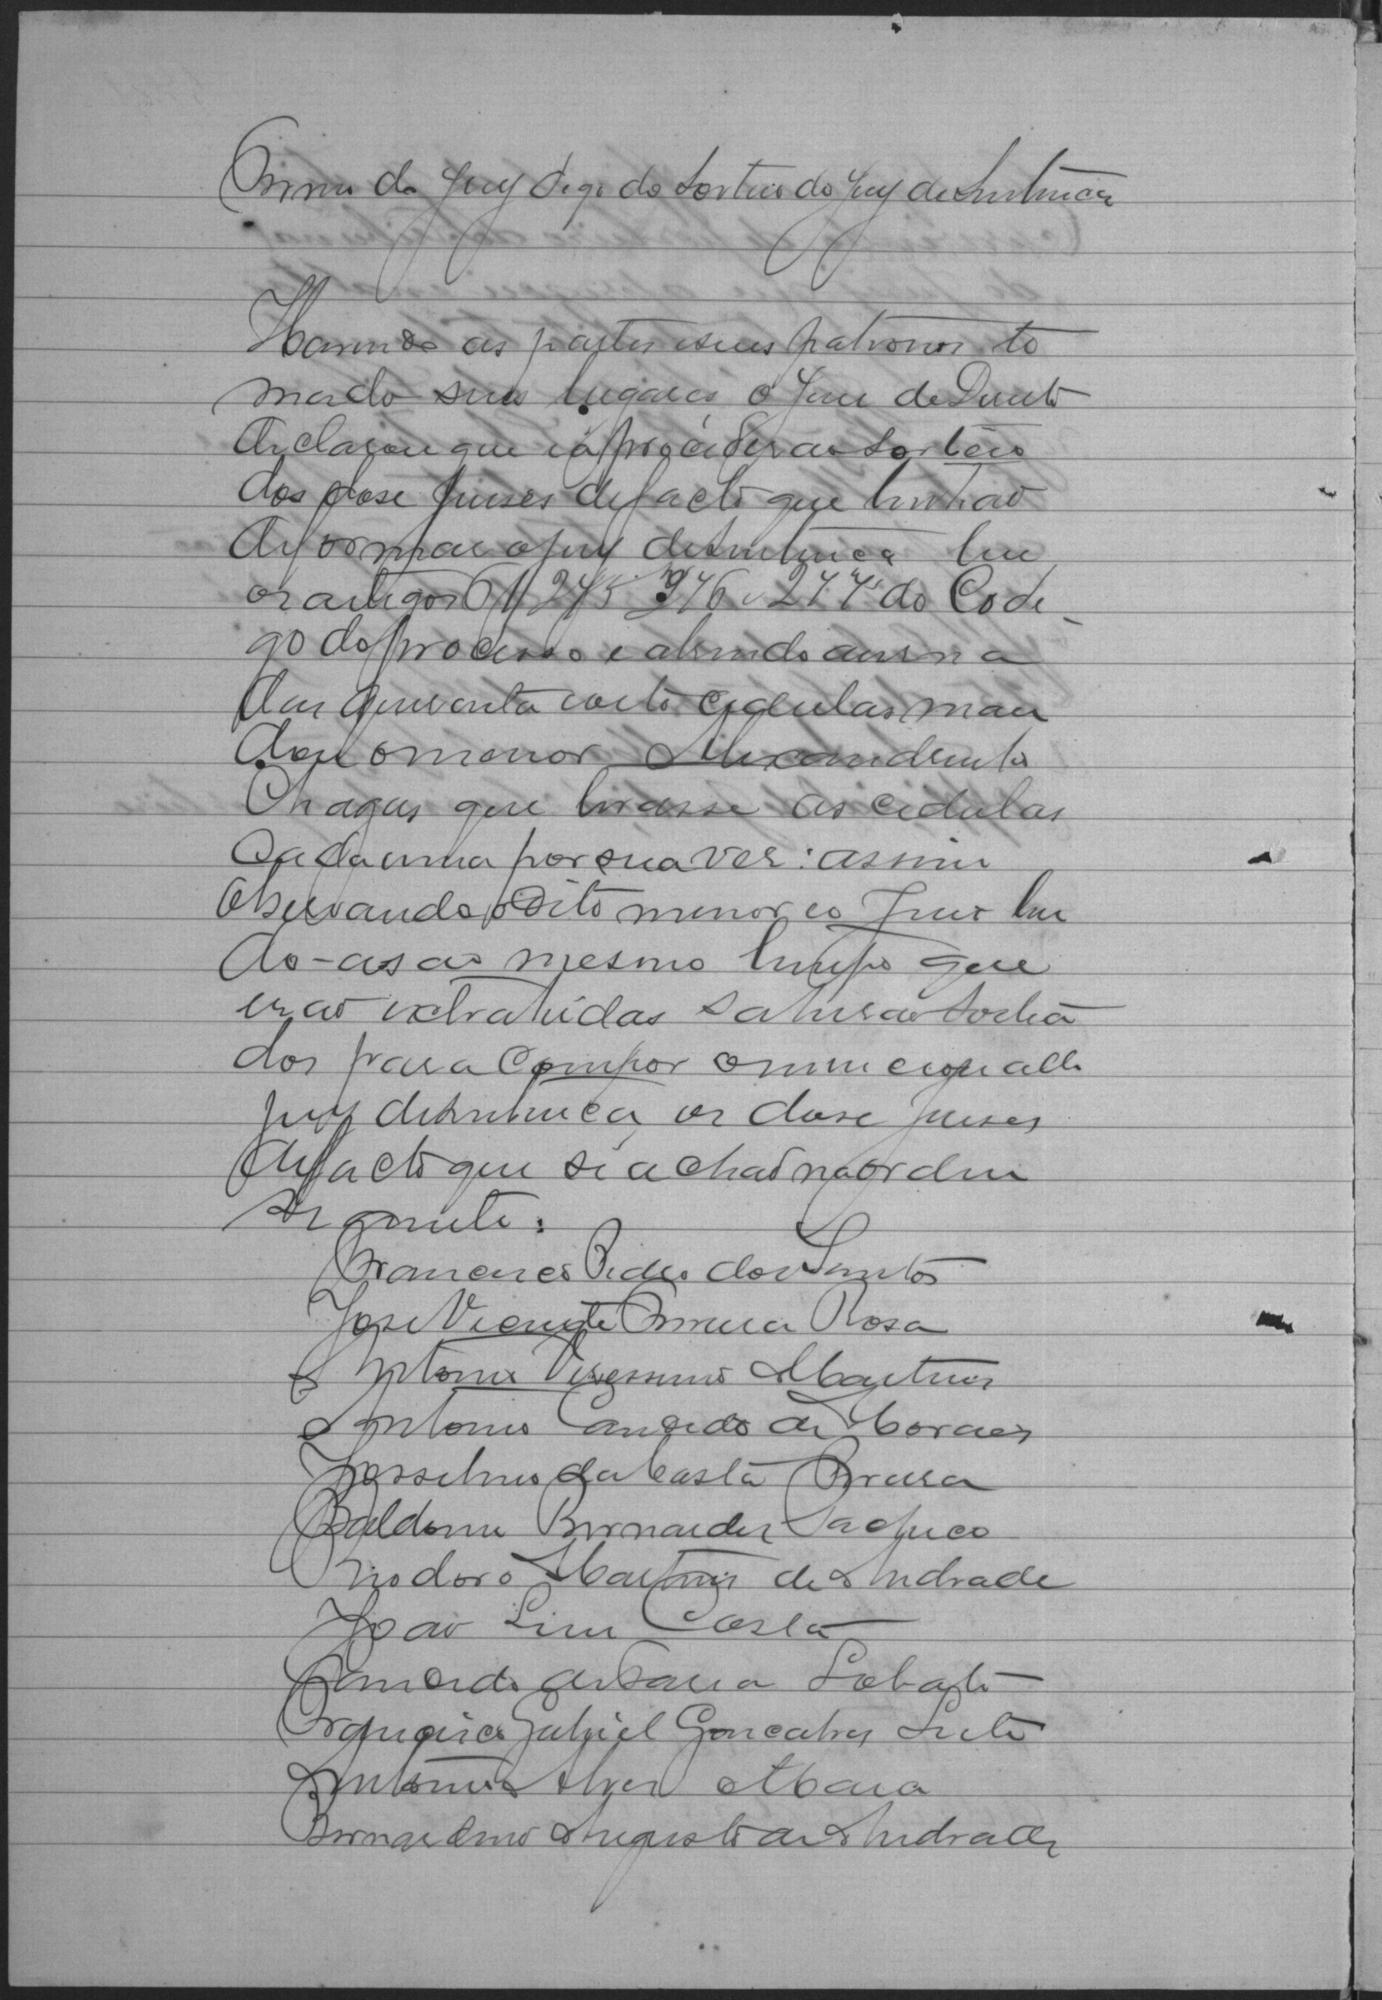 Termo do Jury digo do Sorteio do Jury de Sentença
Havendo as partes e seus patronos to
mado seus lugares o Juiz de Direito
declarou que ia proceder ao sorteio
dos dose juises de facto que tinhão
de formar o jury de sentença
os artigos 275 276 e 277 do Codi
go do processo e abrindo a urna
das quarenta e oito cedulas man
dou o menor Alexandre
Chagas que tirasse as cedulas
cada uma por sua vez: assim
observando o dito menor e o Juiz len
do-as ao mesmo tempo que
erão extrahidas sahirão sortea
dos para compor o
jury de sentença os dose juises
de facto que se achão na ordem
seguinte:
Francisco Pedro dos Santos
José Vicente Ferreira Rosa
Antonio Veressimo Martins
Antonio Candido de Moraes
Josselino da Costa Pereira
Baldoino Bernardes Pacheco
Theodoro Martins de Andrade
João Lino Costa
Candido de Faria Lobato
Francisco Gabriel Gonçalves Leite
Antonio Alves Maia
Bernardino Augusto de Andrade